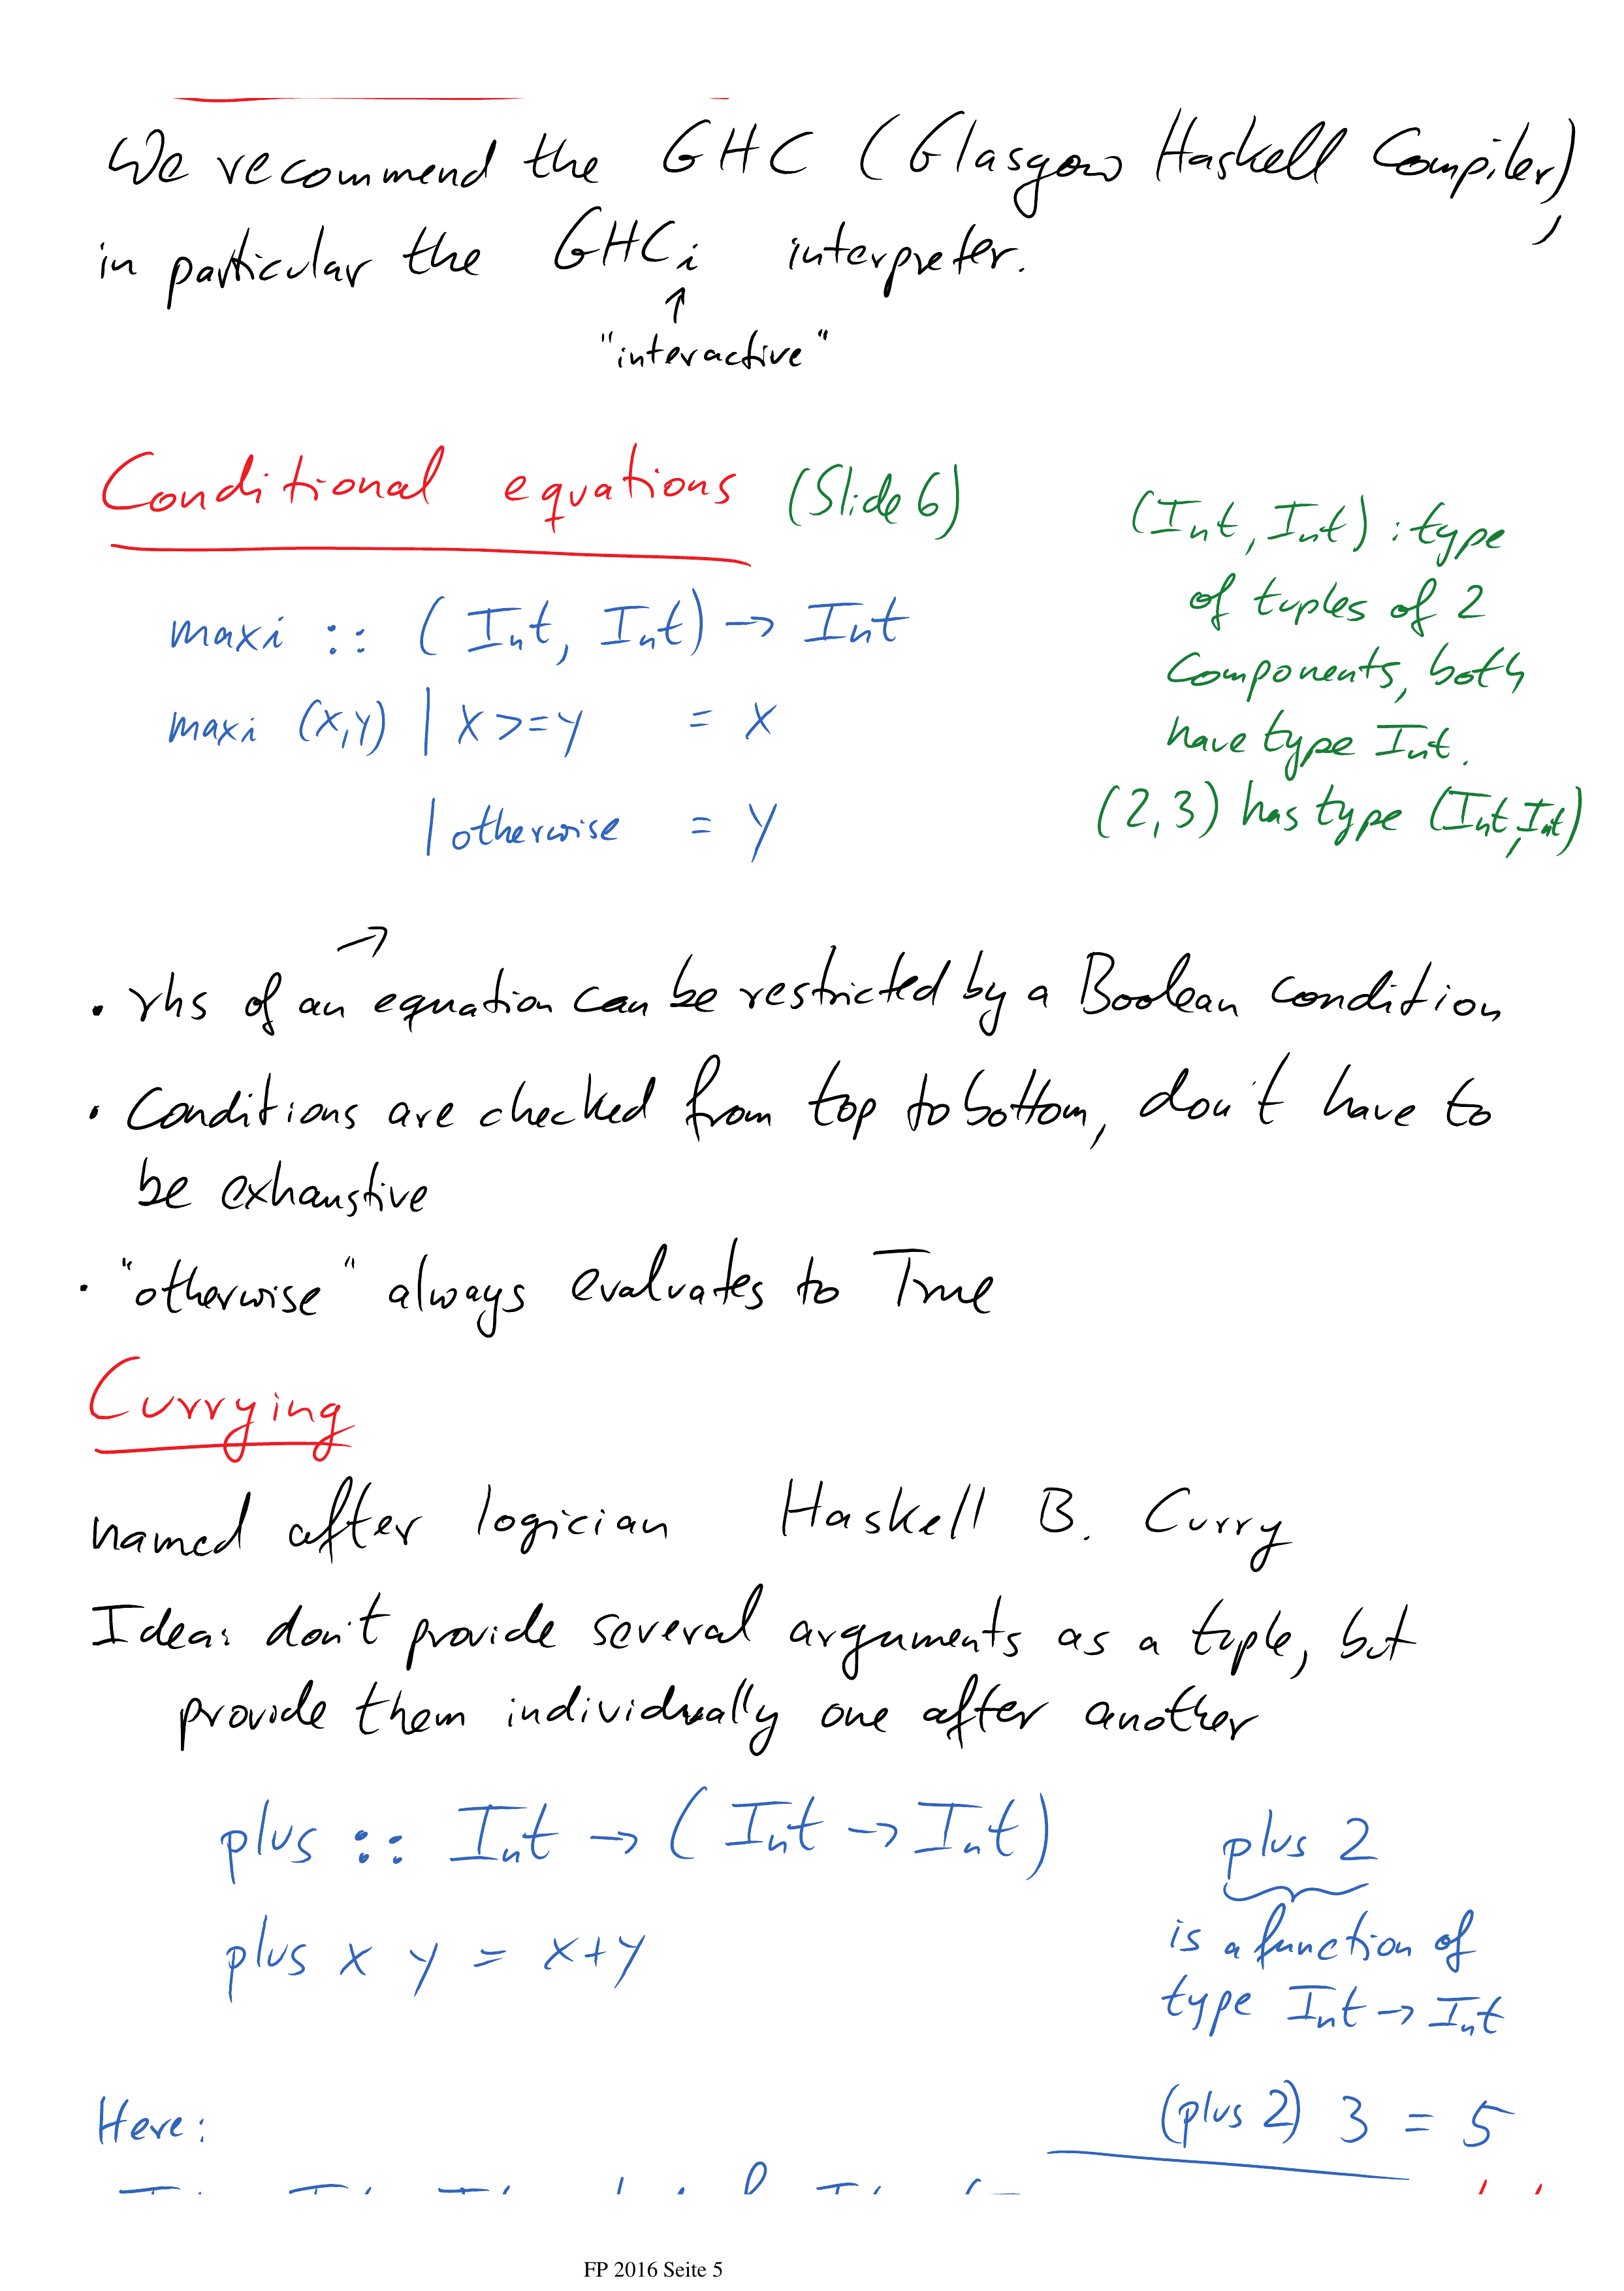 We recommend the GHC (Glasgow Haskell Compiler),
in particular the GHCi interpreter.
↑
"interactive"
Conditional equations (Slide 6)
maxi :: (Int, Int) → Int
maxi (x,y) | x >= y = x
| otherwise = y
(Int, Int) : type
of tuples of 2
components, both
have type Int.
(2,3) has type (Int, Int)
→
• rhs of an equation can be restricted by a Boolean condition
• Conditions are checked from top to bottom, don't have to
be exhaustive
• "otherwise" always evaluates to True
Currying
named after logician Haskell B. Curry
Idea: don't provide several arguments as a tuple, but
provide them individually one after another
plus :: Int → (Int → Int)
plus x y = x+y
plus 2
is a function of
type Int → Int
(plus 2) 3 = 5
Here:
FP 2016 Seite 5